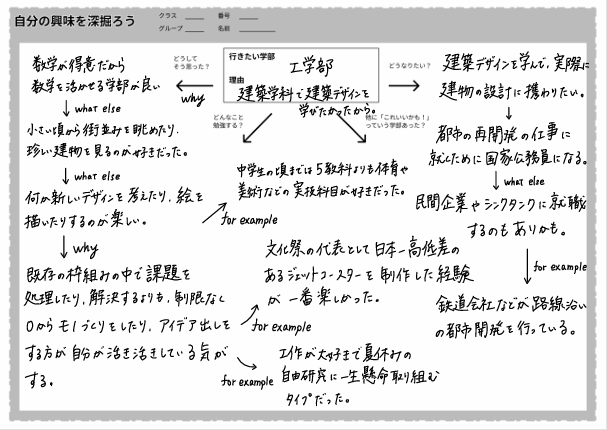 自分の興味を深掘ろう
クラス
番号
グループ
名前
行きたい学部
工学部
理由
建築学科で建築デザインを
学びたかったから。
どうして
そう思った?
why
数学が得意だから
数学を活かせる学部が良い
what else
小さい頃から街並みを眺めたり、
珍しい建物を見るのが好きだった。
what else
何か新しいデザインを考えたり、絵を
描いたりするのが楽しい。
why
既存の枠組みの中で課題を
処理したり、解決するよりも、制限なく
0からモノづくりをしたり、アイデア出しを
する方が自分が活き活きしている気が
する。
for example
中学生の頃までは5教科よりも体育や
美術などの実技科目が好きだった。
for example
文化祭の代表として日本一高低差の
あるジェットコースターを制作した経験
が一番楽しかった。
for example
工作が大好きで夏休みの
自由研究に一生懸命取り組む
タイプだった。
どんなこと
勉強する?
他に「これいいかも!」
っていう学部あった?
どうなりたい?
建築デザインを学んで、実際に
建物の設計に携わりたい。
都市の再開発の仕事に
就くために国家公務員になる。
what else
民間企業やシンクタンクに就職
するのもありかも。
for example
鉄道会社などが路線沿い
の都市開発を行っている。